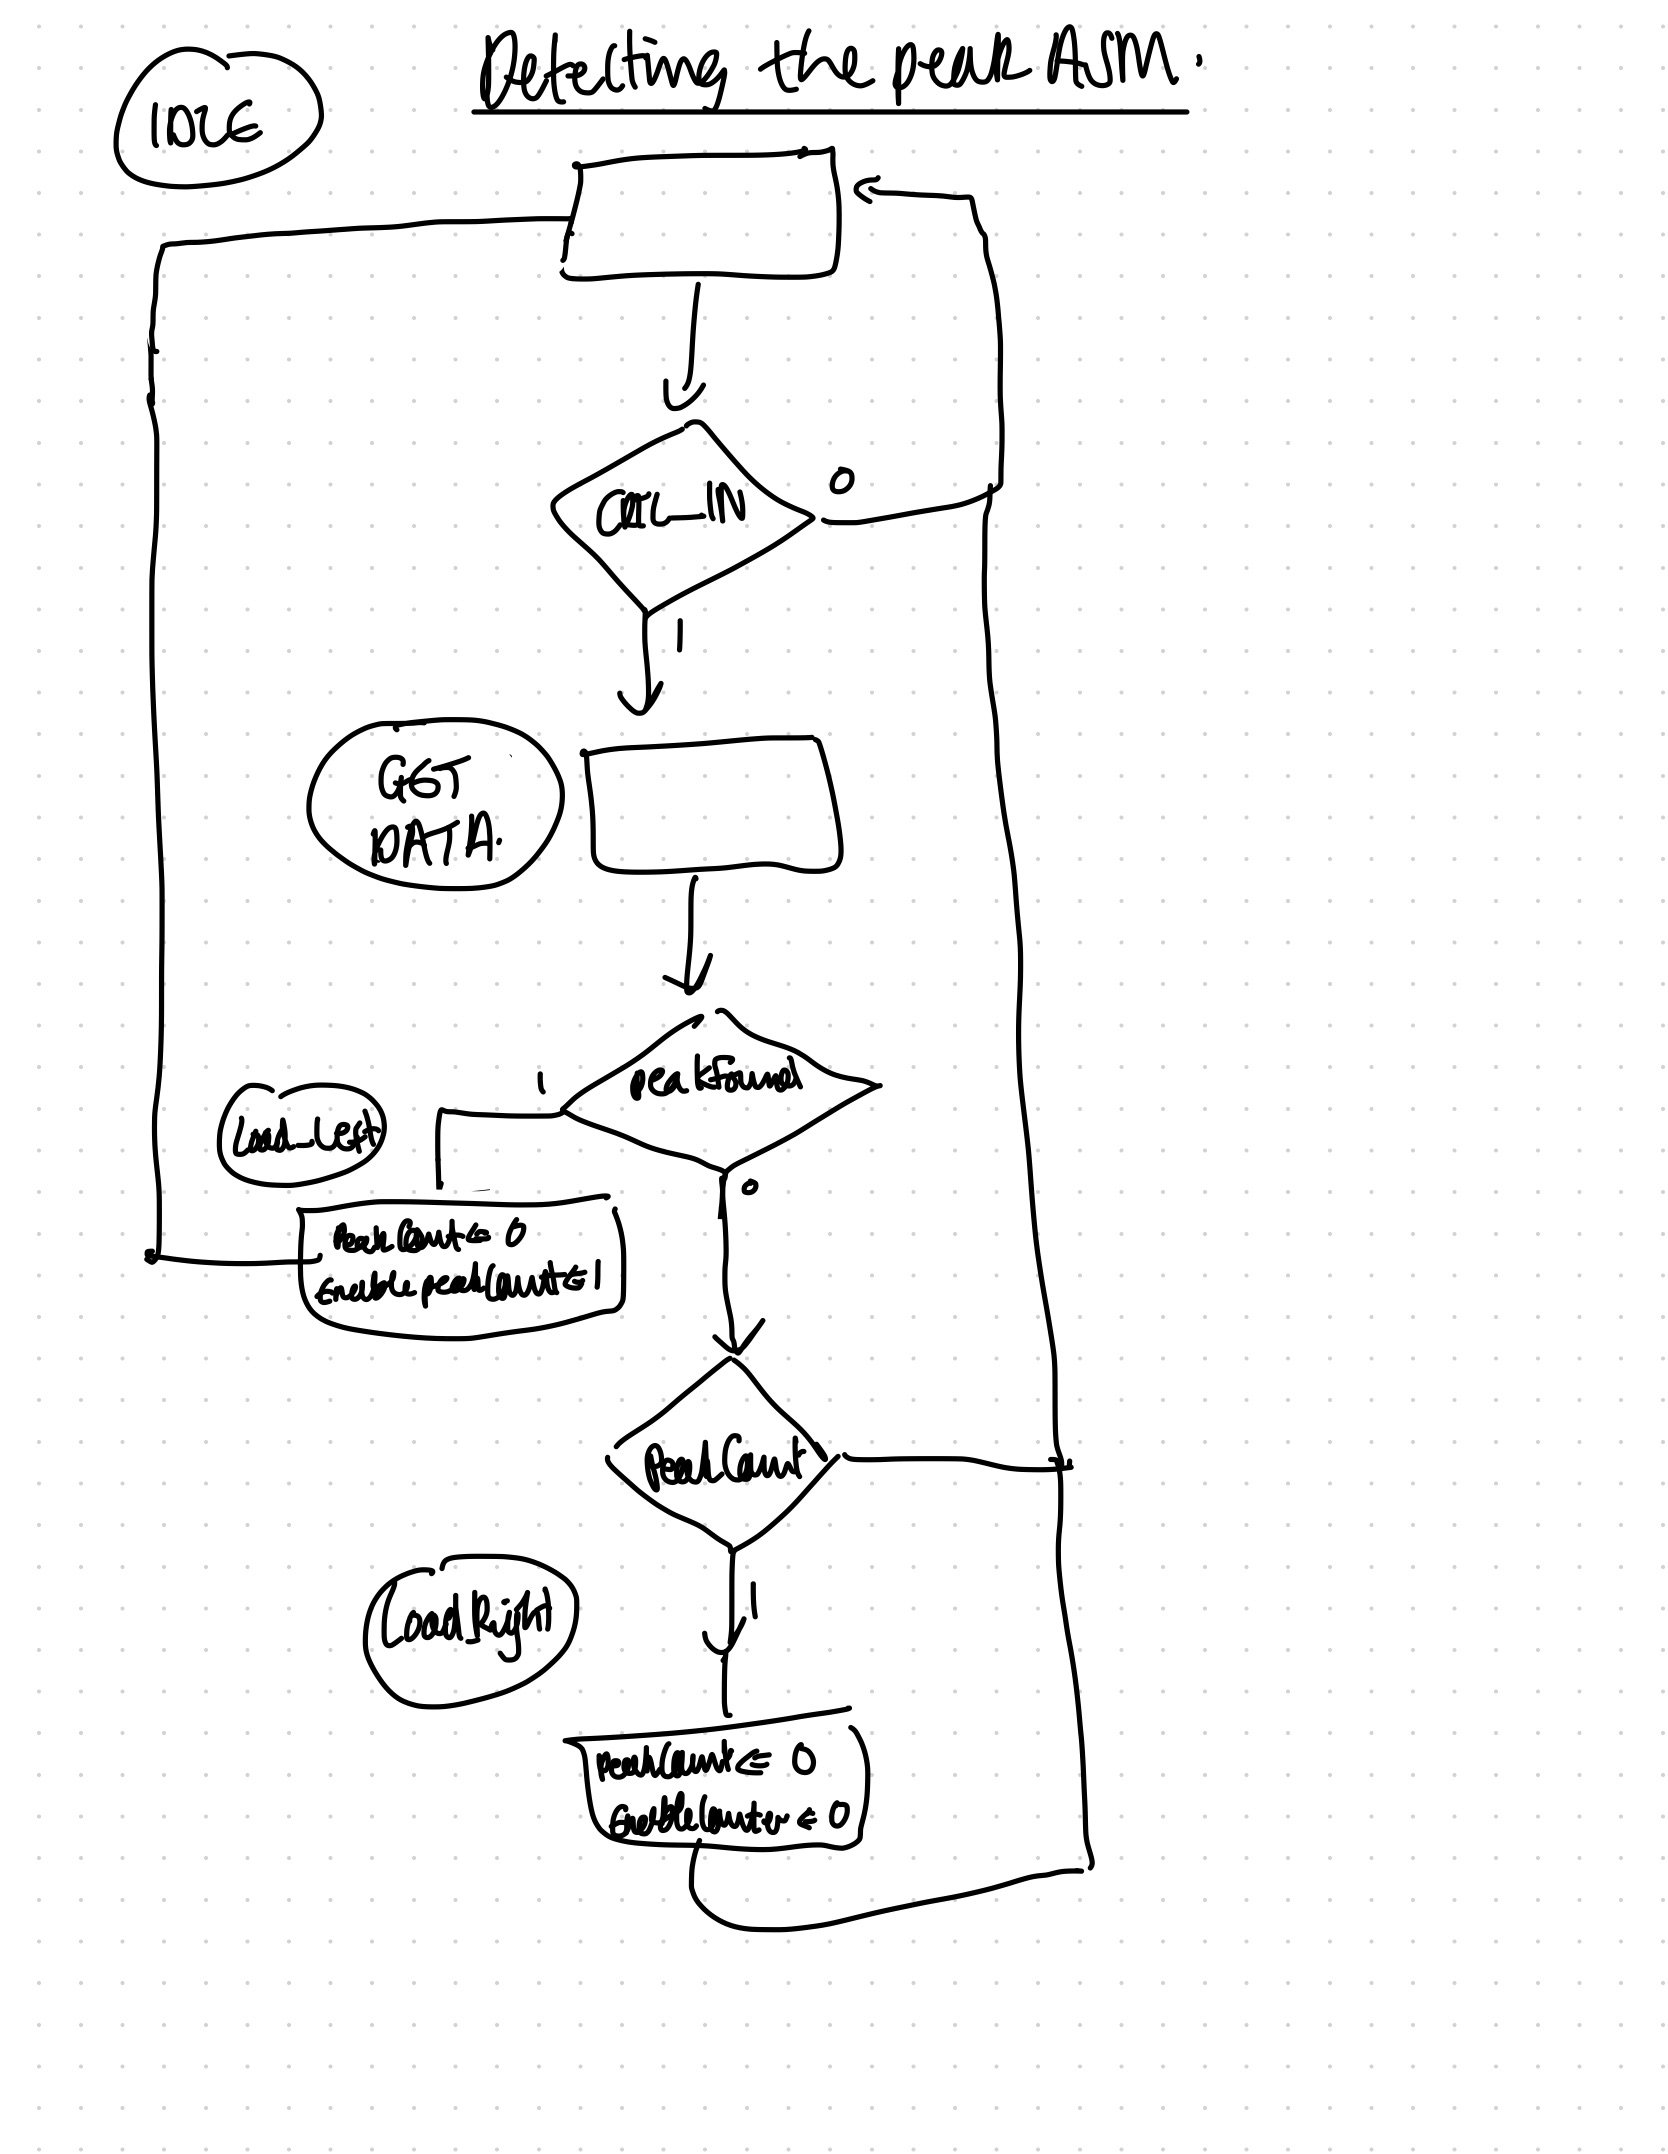 Detecting the peak ASM.
IDLE
0
1
GET
DATA.
peakFound
1
Load_Left
0
PeakCount <= 0
Enable peakCount <= 1
PeakCount
Load_Right
1
peakCount <= 0
EnableCounter <= 0